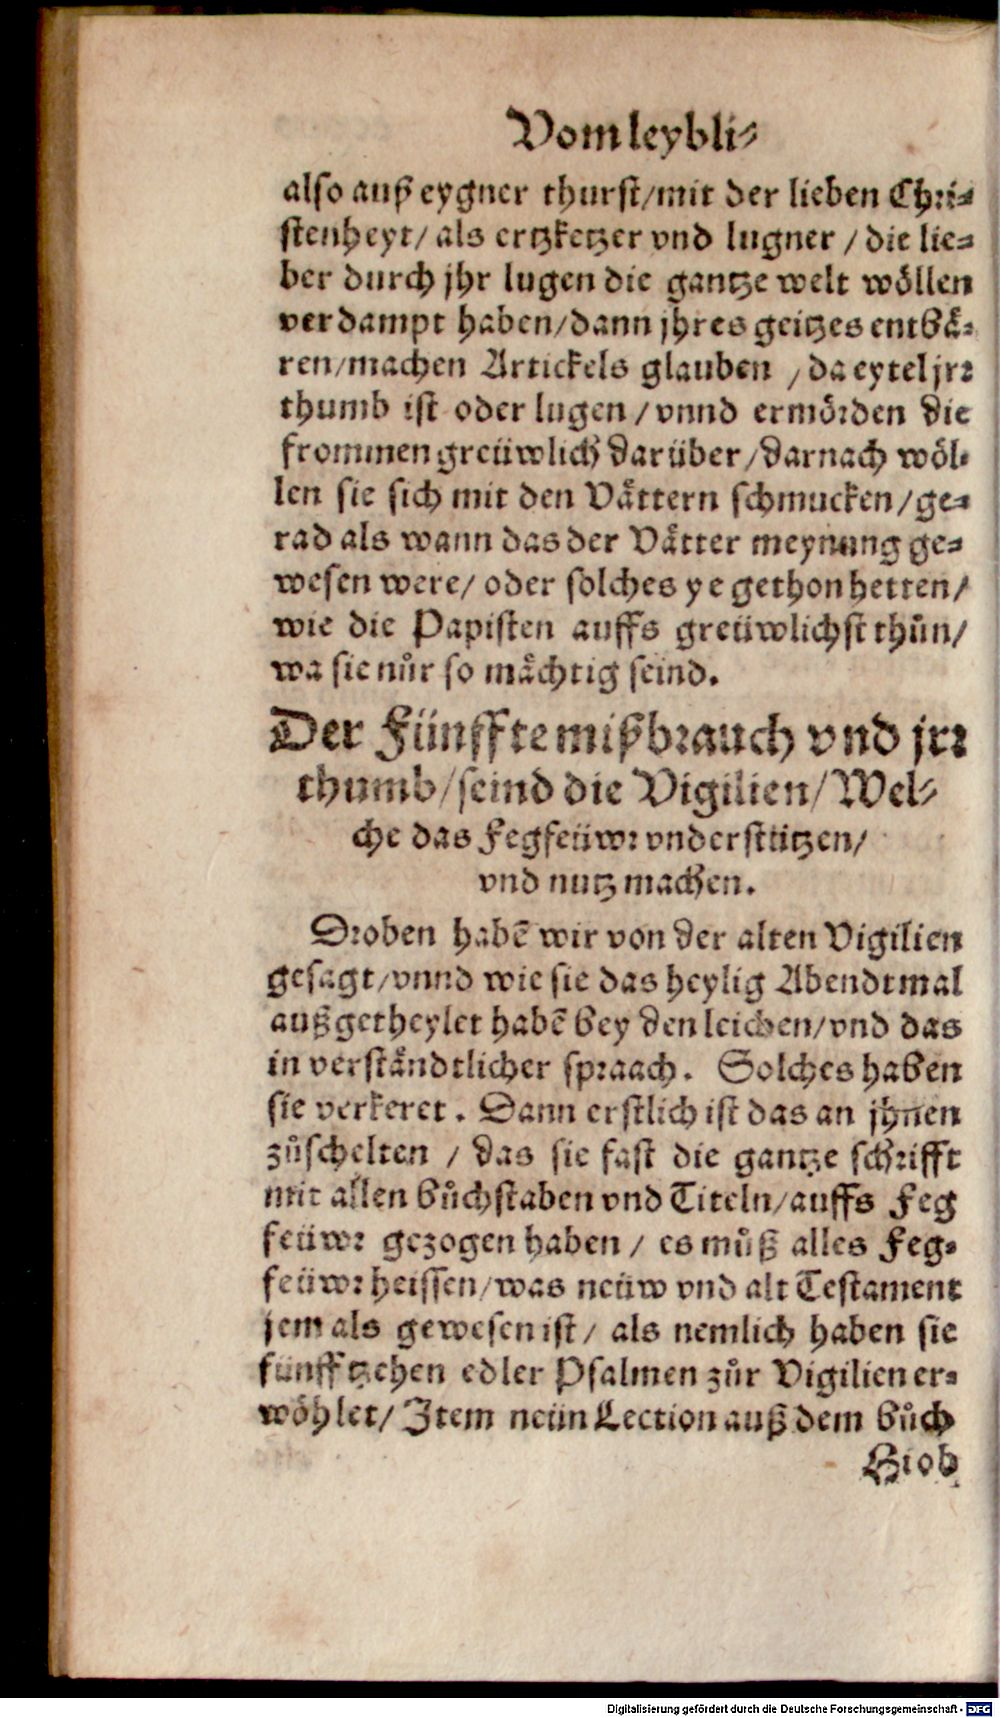 Vom leybli⸗
also auß eygner thurst/mit der lieben Chri⸗
stenheyt/ als ertzketzer vnd lugner / die lie⸗
ber durch jhr lugen die gantze welt wöllen
verdampt haben/dann jhres geitzes entbå⸗
ren/machen Artickels glauben / da eytel jrr
thumb ist oder lugen / vnnd ermörden die
frommen greüwlich darüber/darnach wöl⸗
len sie sich mit den Våttern schmucken/ge⸗
rad als wann das der Våtter meynung ge⸗
wesen were/ oder solches ye gethon hetten/
wie die Papisten auffs greüwlichst thůn/
wa sie nůr so måchtig seind.
Der Fünffte mißbrauch vnd jrr
thumb/seind die Vigilien/Wel⸗
che das Fegfeüwr vnderstützen/
vnd nutz machen.
Droben habē wir von der alten Vigilien
gesagt/vnnd wie sie das heylig Abendtmal
außgetheylet habē bey den leichen/vnd das
in verståndtlicher spraach. Solches haben
sie verkeret. Dann erstlich ist das an jhnen
zůschelten / das sie fast die gantze schrifft
mit allen bůchstaben vnd Titeln/auffs Feg
feüwr gezogen haben / es můß alles Feg⸗
feüwr heissen/was neüw vnd alt Testament
jemals gewesen ist/ als nemlich haben sie
fünfftzehen edler Psalmen zůr Vigilien er⸗
wöhlet/ Item neün Lection auß dem bůch
Hiob
Digitalisierung gefördert durch die Deutsche Forschungsgemeinschaft - DFG